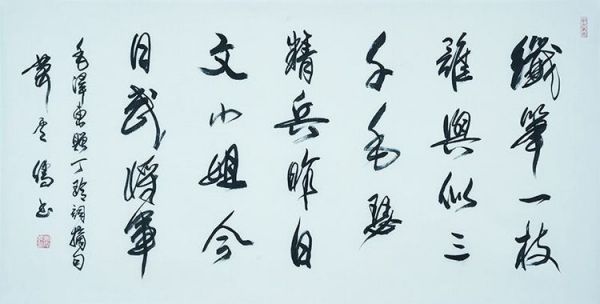 纖筆一枝
誰與似三
千毛瑟
精兵昨日
文小姐今
日武將軍
毛澤東 丁玲詞摘句
书